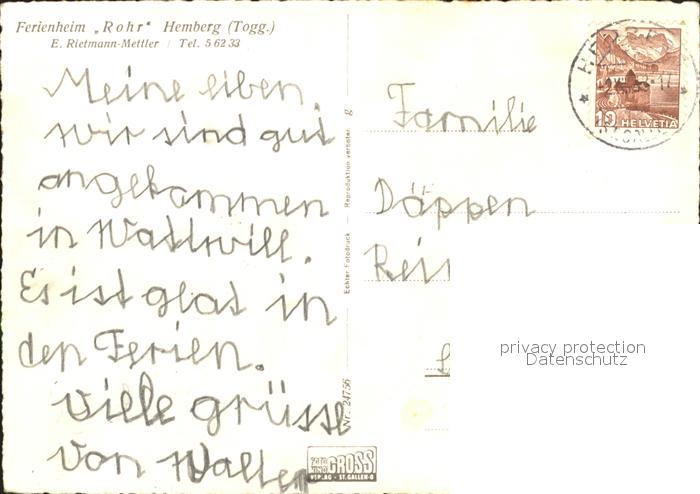 Ferienheim „Rohr" Hemberg (Togg.)
E. Rietmann-Mettler / Tel. 5 62 33
Meine liben.
wir sind gut
angekommen
in Wattwill.
Es ist glat in
den Ferien.
viele grüsse
von Walter
Echter Fotodruck Reproduktion verboten g
Nr. 24756
FOTO UND GROSS
VERLAG ST. GALLEN
10 HELVETIA
Familie
Däppen
privacy protection
Datenschutz